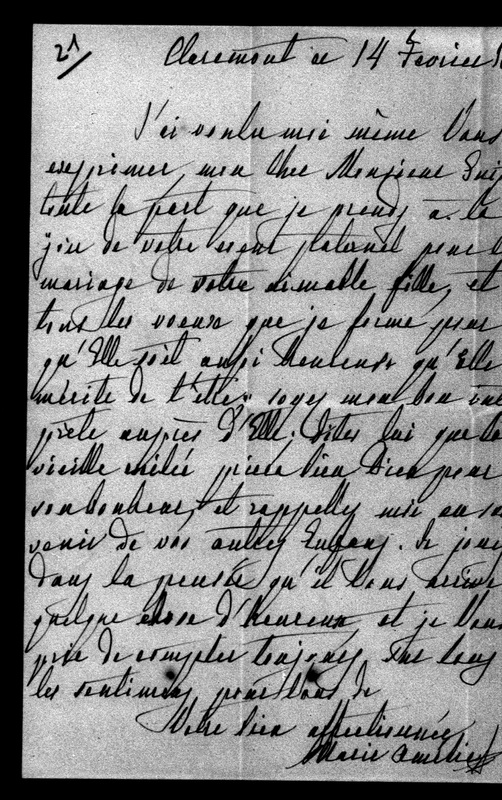 21
Claremont ce 14 Fevrier
J'ai voulu moi même Vous
exprimer, mon cher Monsieur
toute la part que je prends à la
joie de votre cœur paternel pour le
mariage de votre aimable fille, et
tous les vœux que je forme pour
qu'Elle soit aussi heureuse qu'Elle
mérite de l'être, soyez mon bon
prète auprès d'Elle. Dites lui que la
vieille priera bien Dieu pour
son bonheur, et rappellez moi au sou
venir de vos autres Enfans. Je jouis
dans la pensée qu'il Vous arrive
quelque chose d'heureux et je Vous
prie de compter toujours sur tous
les sentimens pour Vous de
Votre bien affectionnée
Marie Amélie